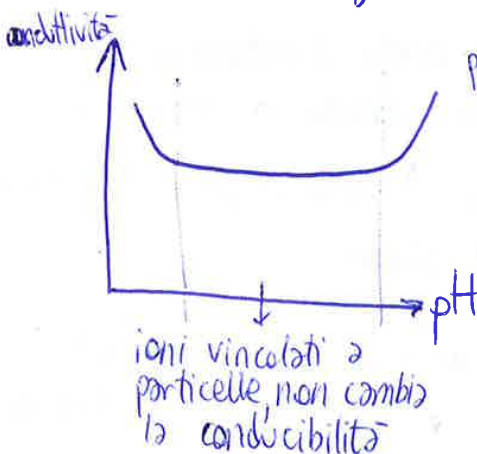 conduttività
p
pH
ioni vincolati a
particelle, non cambia
la conducibilità